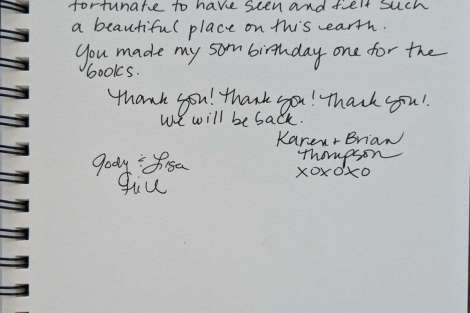 fortunate to have seen and felt such
a beautiful place on this earth.
You made my 50th birthday one for the
books.
Thank you! Thank you! Thank you!
We will be back.
Karen + Brian
Thompson
xoxoxo
Jody & Lisa